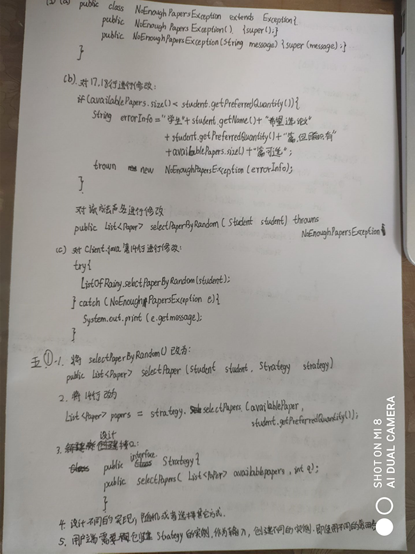 (a) public class NoEnoughPapersException extends Exception{
public NoEnoughPapersException() {super();}
public NoEnoughPapersException(String message) {super(message);}
}
(b) 对17.18行进行修改:
if(availablePapers.size() < student.getPreferredQuantity()){
String errorInfo = "学生" + student.getName() + "希望选论文"
+ student.getPreferredQuantity() + "篇,但目前只有"
+ availablePapers.size() + "篇可选";
trown new NoEnoughPapersException(errorInfo);
}
对方法声名进行修改
public List<Paper> selectPaperByRandom (Student student) throwns
NoEnoughPapersException
(c) 对Client.java 第14行进行修改:
try{
listOfRainy.selectPaperByRandom(student);
} catch (NoEnoughPapersException e){
System.out.print (e.getmessage);
}
五 ① 1. 将 selectPaperByRandom() 改为:
public List<Paper> selectPaper (Student student, Strategy strategy)
2. 将14行改为
List<Paper> papers = strategy.selectPapers (availablePaper,
student.getPreferredQuantity());
3. 设计接口:
public interface Strategy {
public selectPapers ( List<Paper> availablepapers, int q);
}
4. 设计不同的实现,随机或者选择其它方式.
5. 用户端需要创建 Strategy 的实例,作为输入,创建不同的实例,即使用不同的
SHOT ON MI 8
AI DUAL CAMERA